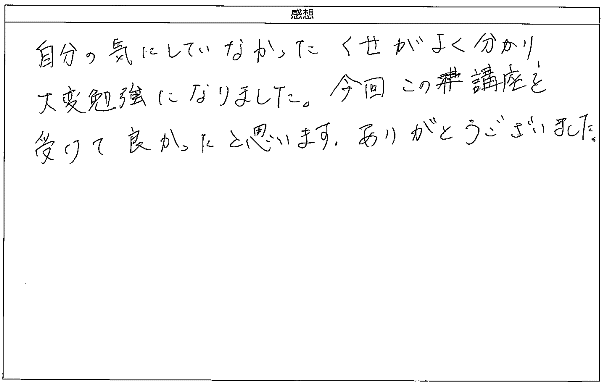 感想
自分の気にしていなかったくせがよく分かり
大変勉強になりました。今回この講座を
受けて良かったと思います。ありがとうございました。